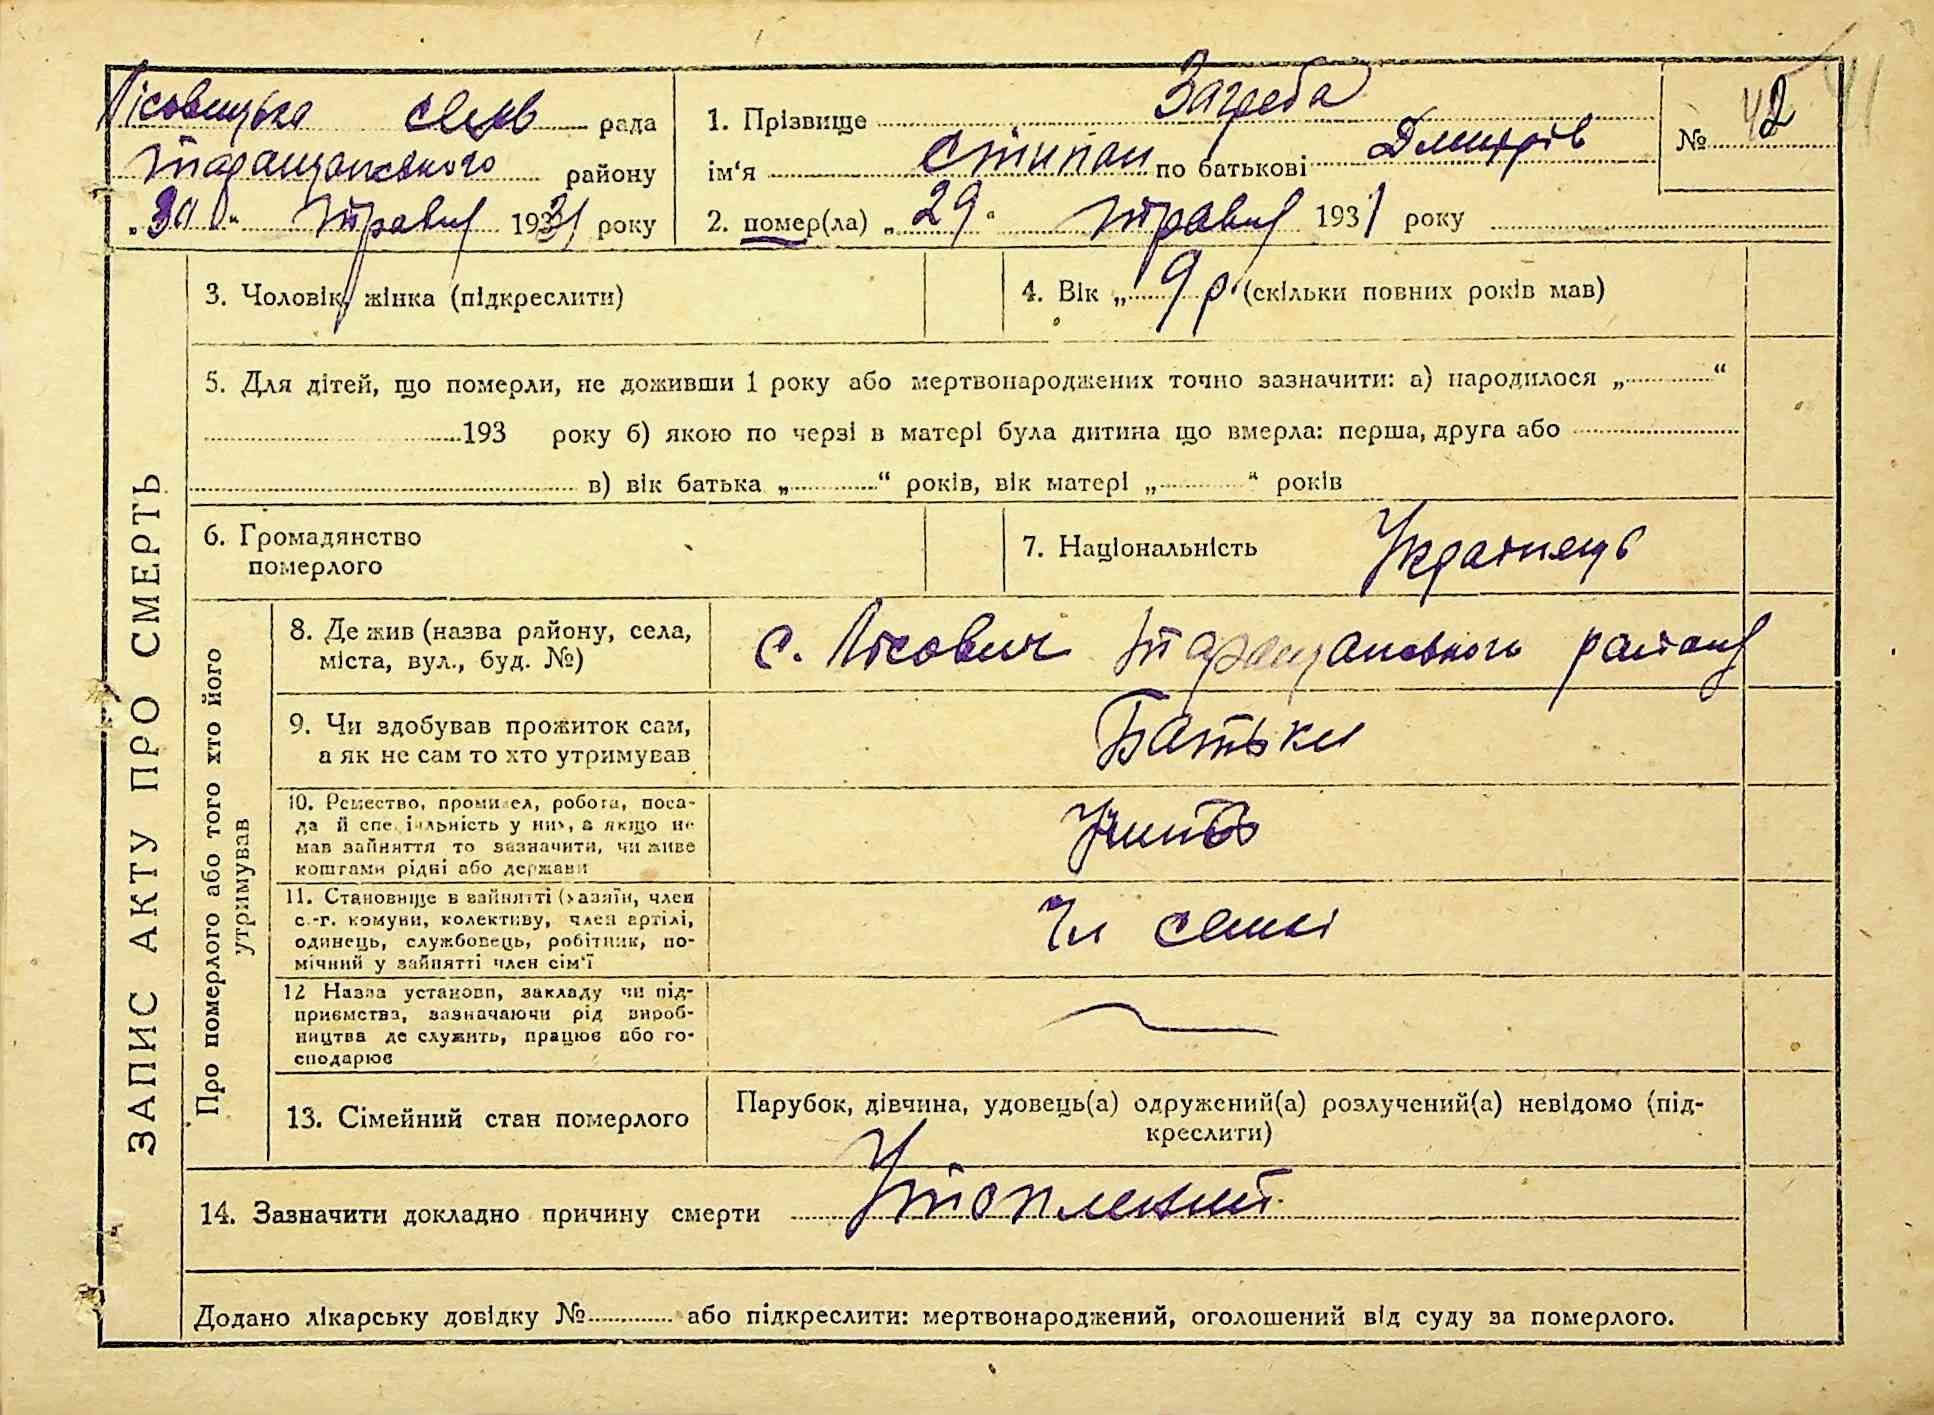 Лісовицька сельв рада
Таращанського району
„30“ травня 1931 року
1. Прізвище Загреба
ім‘я Стипан по батькові Дмитрів
№ 42 41
2. помер(ла) „29“ травня 1931 року
3. Чоловік, жінка (підкреслити)
4. Вік „9 р. (скільки повних років мав)
5. Для дітей, що померли, не доживши 1 року або мертвонароджених точно зазначити: а) народилося „ “
193 року б) якою по черзі в матері була дитина що вмерла: перша, друга або
в) вік батька „ “ років, вік матері „ “ років
6. Громадянство
померлого
7. Національність Украінець
8. Де жив (назва району, села,
міста, вул., буд. №)
с. Лісович Таращанського району
9. Чи здобував прожиток сам,
а як не сам то хто утримував
Батьки
10. Ремество, промисел, робота, поса-
да й спеціяльність у них, а якщо не
мав зайняття то зазначити, чи живе
коштами рідні або держави
11. Становище в зайнятті (хазяїн, член
с.-г. комуни, колективу, член артілі,
одинець, службовець, робітник, по-
мічний у зайнятті член сім‘ї
Чл семьі
12 Назва установи, закладу чи під-
приємства, зазначаючи рід вироб-
ництва де служить, працює або го-
сподарює
13. Сімейний стан померлого
Парубок, дівчина, удовець(а) одружений(а) розлучений(а) невідомо (під-
креслити)
14. Зазначити докладно причину смерти Утопленит.
Додано лікарську довідку № або підкреслити: мертвонароджений, оголошений від суду за померлого.
ЗАПИС АКТУ ПРО СМЕРТЬ
Про померлого або того хто його
утримував